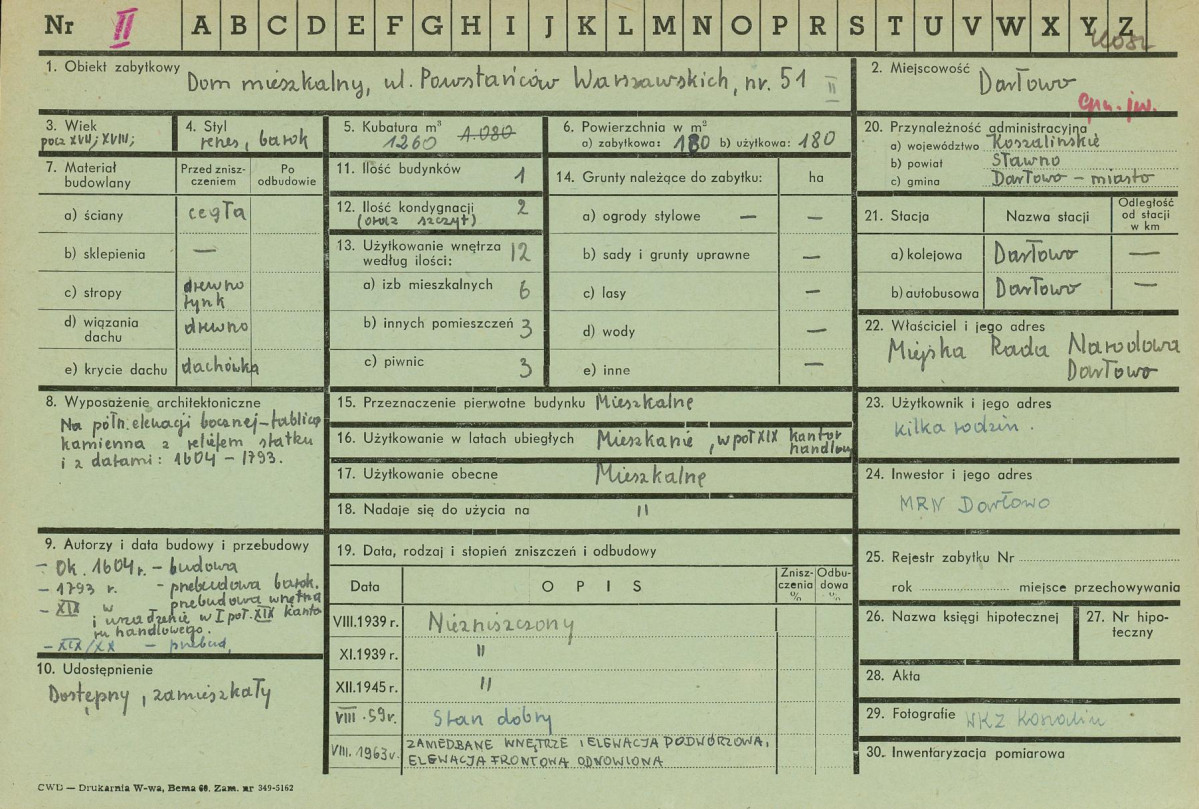 Nr II A B C D E F G H I J K L M N O P R S T U V W X Y Z
1. Obiekt zabytkowy Dom mieszkalny, ul. Powstańców Warszawskich, nr. 51 II
2. Miejscowość Darłowo
3. Wiek
pocz XVII; XVIII;
4. Styl
renes, barok
5. Kubatura m³ 1.080
1260
6. Powierzchnia w m²
a) zabytkowa: 180 b) użytkowa: 180
20. Przynależność administracyjna
a) województwo Koszalińskie
b) powiat Sławno
c) gmina Darłowo – miasto
7. Materiał budowlany
Przed znisz-
czeniem
Po
odbudowie
a) ściany cegła
b) sklepienia —
c) stropy drewno
tynk
d) wiązania
dachu drewno
e) krycie dachu dachówka
11. Ilość budynków 1
12. Ilość kondygnacji 2
(oraz szczyt)
13. Użytkowanie wnętrza
według ilości: 12
a) izb mieszkalnych 6
b) innych pomieszczeń 3
c) piwnic 3
14. Grunty należące do zabytku: ha
a) ogrody stylowe — —
b) sady i grunty uprawne —
c) lasy —
d) wody —
e) inne —
21. Stacja Nazwa stacji Odległość
od stacji
w km
a) kolejowa Darłowo —
b) autobusowa Darłowo —
22. Właściciel i jego adres
Miejska Rada Narodowa
Darłowo
8. Wyposażenie architektoniczne
Na półn. elewacji bocznej – tablica
kamienna z reliefem statku
i z datami: 1604 – 1793.
15. Przeznaczenie pierwotne budynku Mieszkalne
16. Użytkowanie w latach ubiegłych Mieszkanie, w poł XIX kantor
handlowy
17. Użytkowanie obecne Mieszkalne
18. Nadaje się do użycia na "
23. Użytkownik i jego adres
kilka rodzin.
24. Inwestor i jego adres
MRN Darłowo
9. Autorzy i data budowy i przebudowy
– Ok. 1604 r. – budowa
– 1793 r. – przebudowa barok.
– XIX w przebudowa wnętrza
i urządzenie w I poł. XIX kanto
ru handlowego.
– XIX/XX – przebud.
19. Data, rodzaj i stopień zniszczeń i odbudowy
Data OPIS Znisz-
czenia
%
Odbu-
dowa
%
VIII.1939 r. Niezniszczony
XI.1939 r. "
XII.1945 r. "
VIII.59r. Stan dobry
VIII.1963r. ZANIEDBANE WNĘTRZE I ELEWACJA PODWÓRZOWA,
ELEWACJA FRONTOWA ODNOWIONA
25. Rejestr zabytku Nr
rok miejsce przechowywania
26. Nazwa księgi hipotecznej
27. Nr hipo-
teczny
28. Akta
10. Udostępnienie
Dostępny, zamieszkały
29. Fotografie WKZ Koszalin
30. Inwentaryzacja pomiarowa
CWD — Drukarnia W-wa, Bema 60. Zam. nr 349-5162